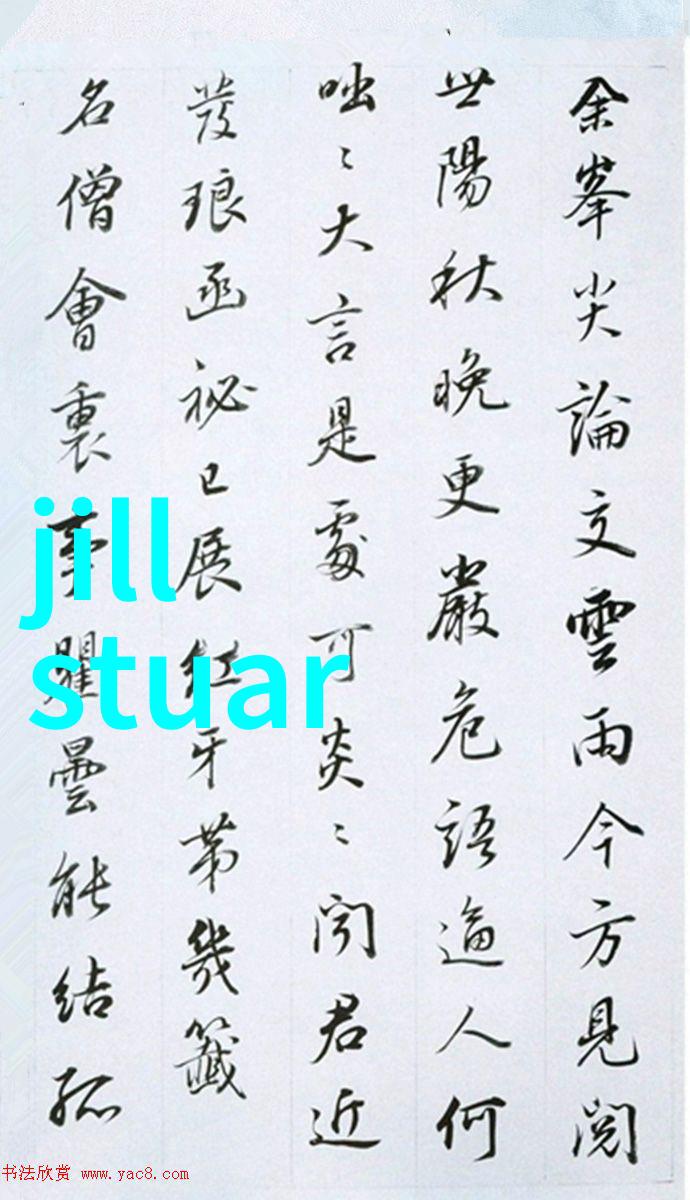 余峯尖論文雲雨今方見閱
世陽秋晚更嚴危語逼人何
咄〻大言是處可炎〻聞君近
發琅函祕已展紅牙第幾籤
名僧會裏事瞿曇能結孤
jill
stuar
书法欣赏 www.yac8.com